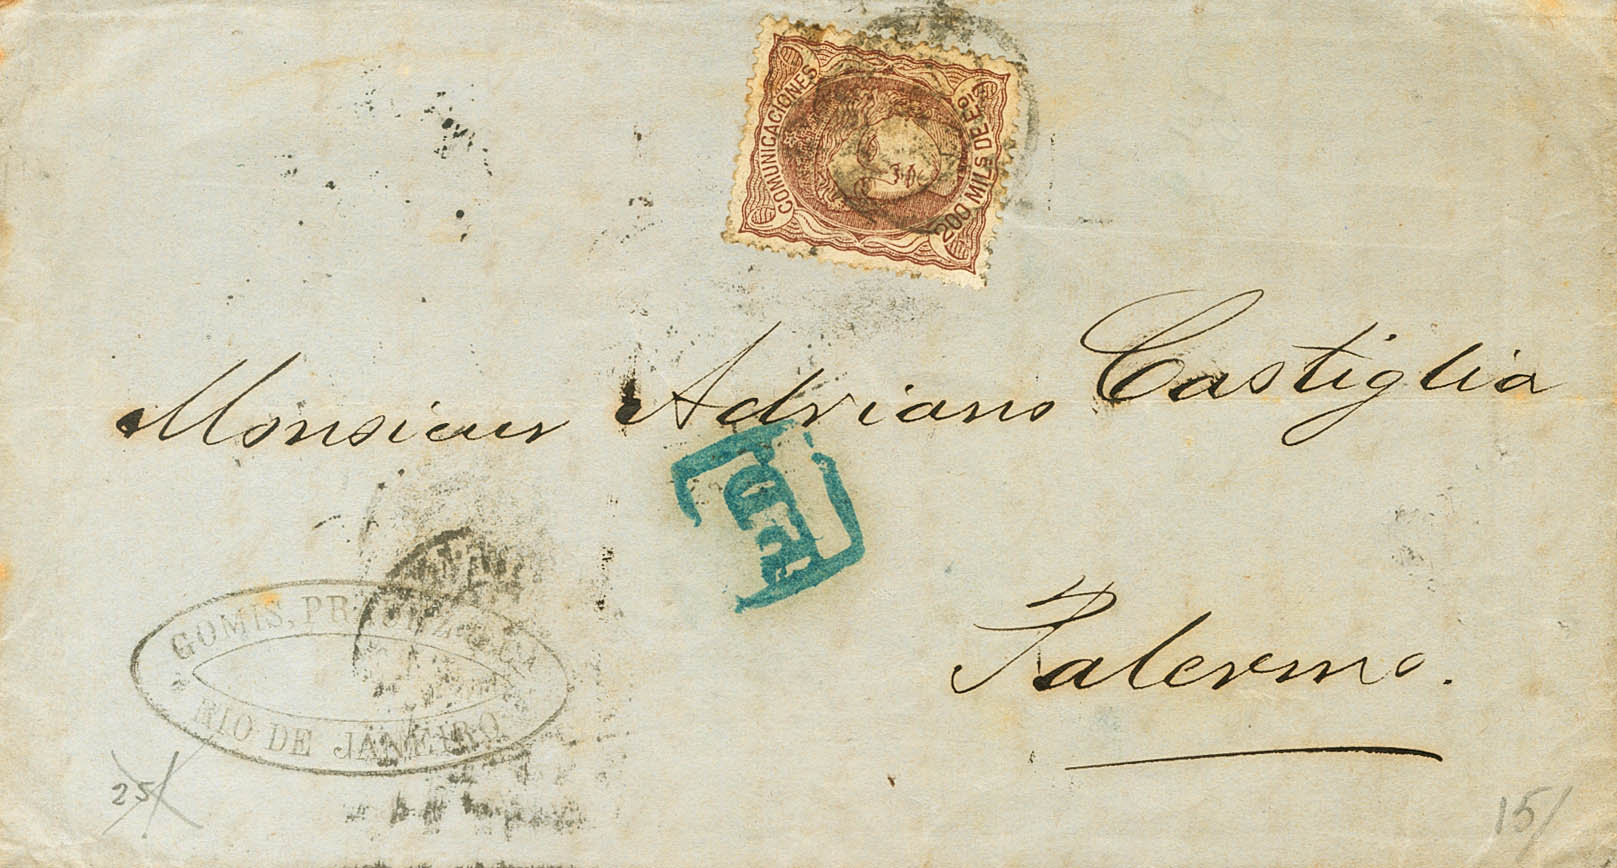 COMUNICACIONES
200 MILS DE Eº
Monsieur Adriano Castiglia
Palermo.
GOMIS,
RIO DE JANEIRO
25
15/